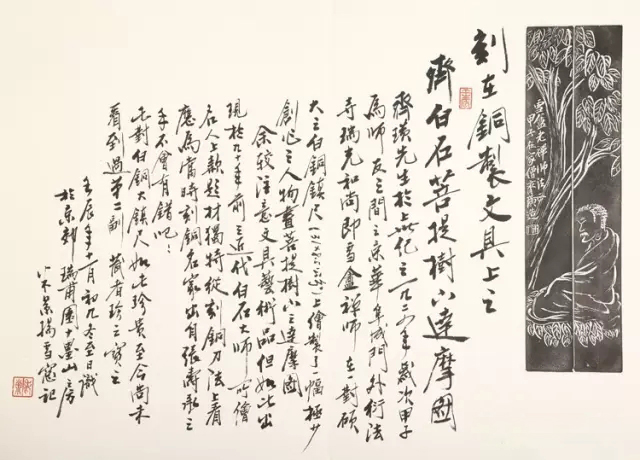 刻在銅製文具上之
齊白石菩提樹下達摩圖
齊璜先生於上世纪之一九二四年歲次甲子
爲師友之間之京華阜成門外衍法
寺瑞光和尚即雪盦禪師在對碩
大之白銅鎮尺上繪製了幅極少
創作之人物畫菩提樹下之達摩圖
余較注意文具藝術品但如此出
現於九十年前之近代白石大師所繪
名人上款題材獨特從刻銅刀法上看
應爲當時刻銅名家出自張壽丞之
手不會有錯吧！
此對白銅大鎮尺如此珍貴至今尚未
看到過第二副 藏者珍之寶之
壬辰年十月初九冬至日識
於京都 瑞甫園十墨山房
楊雪窗記
雪庵老禪師法正
甲子